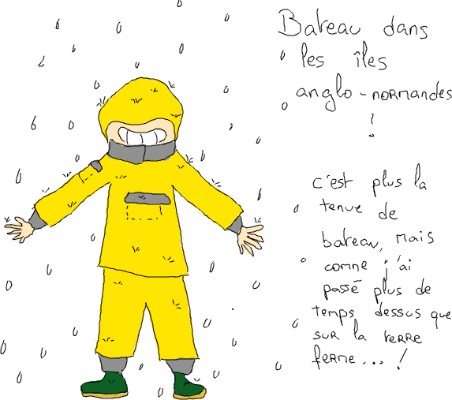 Bateau dans
les îles
anglo-normandes
!
c'est plus la
tenue de
bateau, mais
comme j'ai
passé plus de
temps dessus que
sur la terre
ferme...!